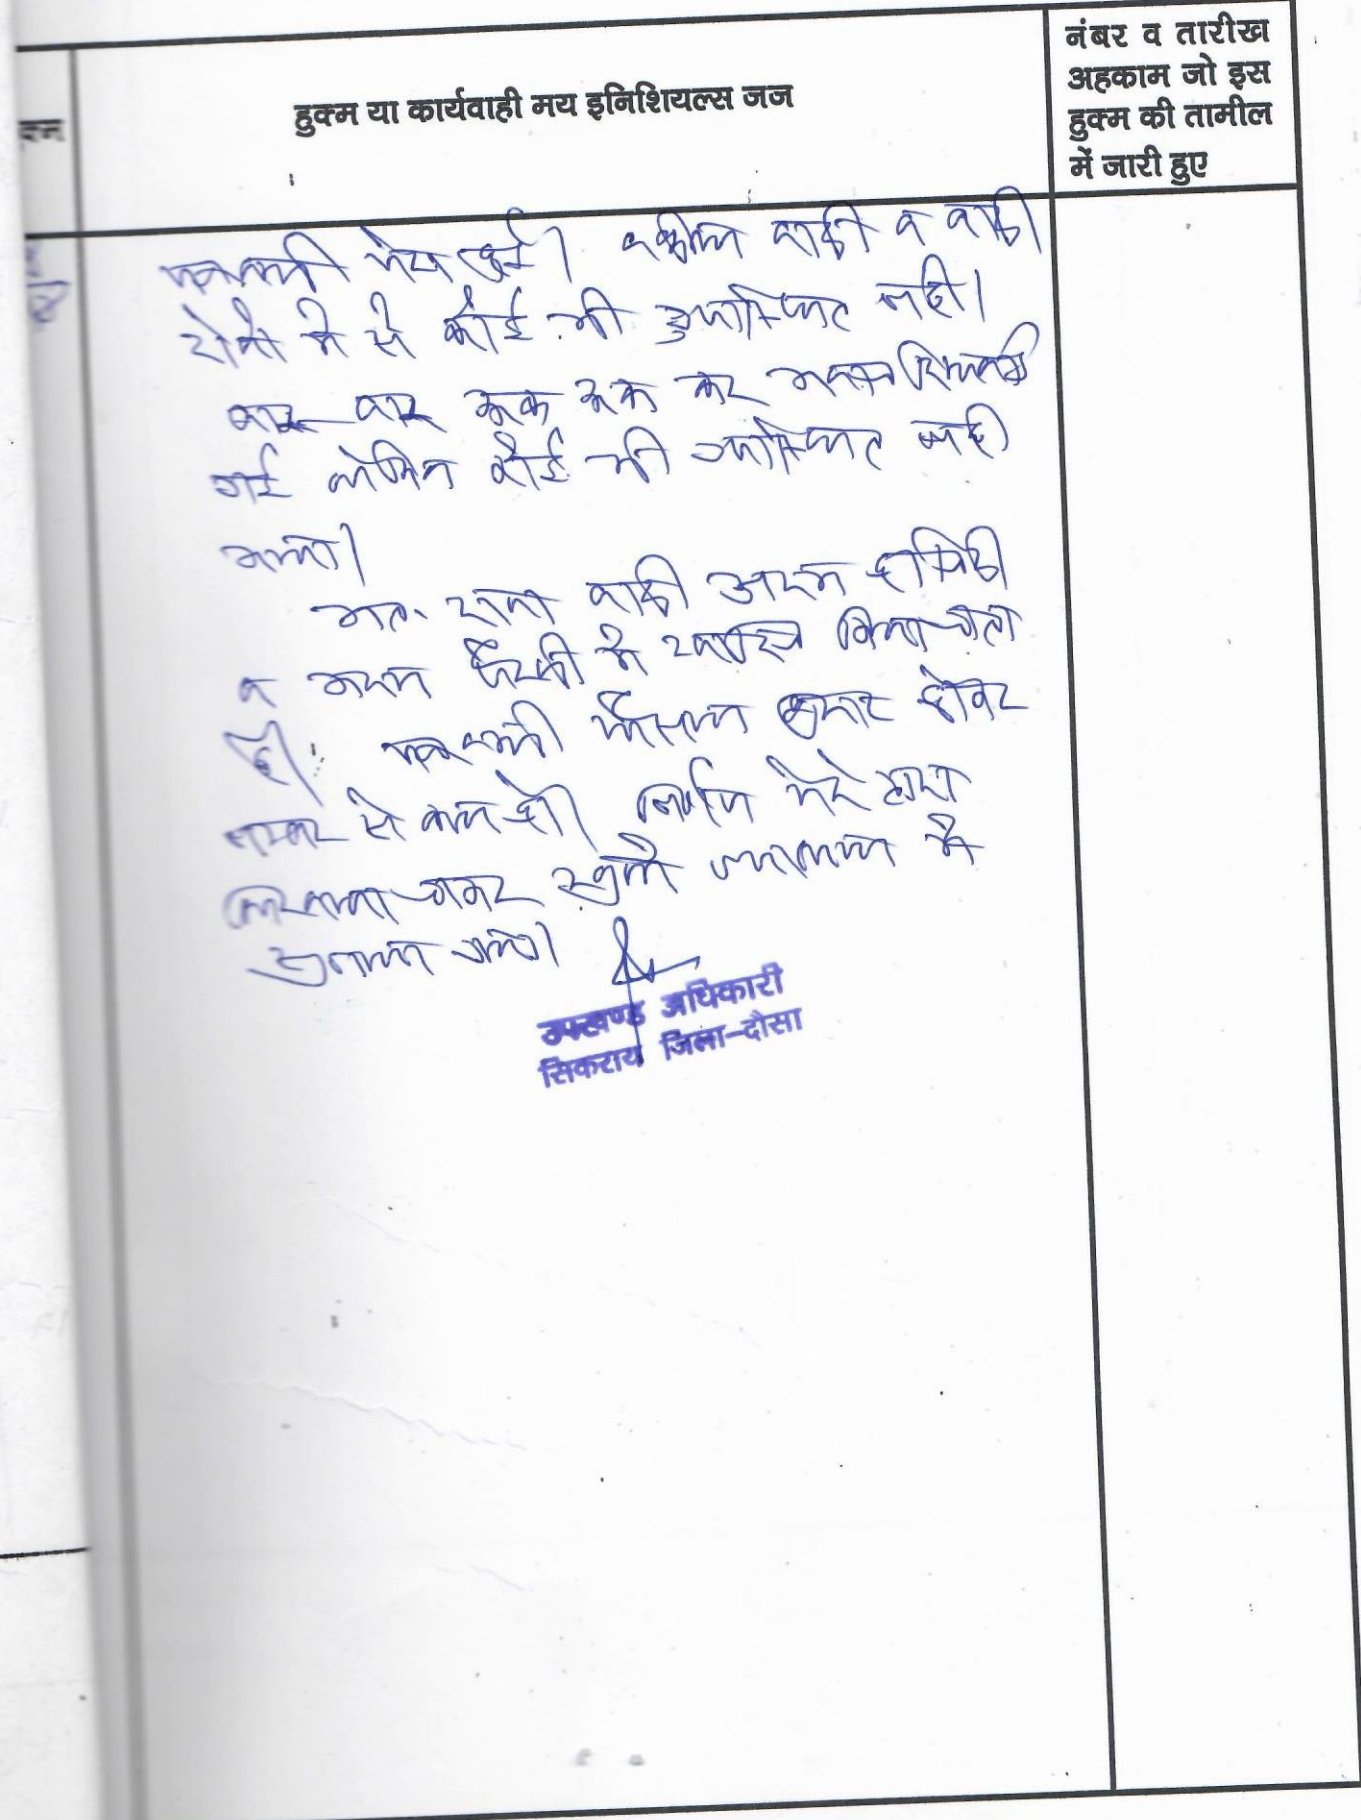 हुक्म या कार्यवाही मय इनिशियल्स जज
नंबर व तारीख
अहकाम जो इस
हुक्म की तामील
में जारी हुए
पत्रावली पेश हुई। वकील वादी व वादी
दोनों में से कोई भी उपस्थित नहीं।
बार बार रूक रूक कर आवाज दिलवाई
गई लेकिन कोई भी उपस्थित नहीं
आया।
अतः दावा वादी अदम हाजिरी
व अदम पैरवी में खारिज किया जाता
है। पत्रावली फैसल शुमार होकर
नम्बर से कम हो। निर्णय मेरे द्वारा
लिखाया जाकर खुले न्यायालय में
सुनाया गया।
उपखण्ड अधिकारी
सिकराय जिला-दौसा